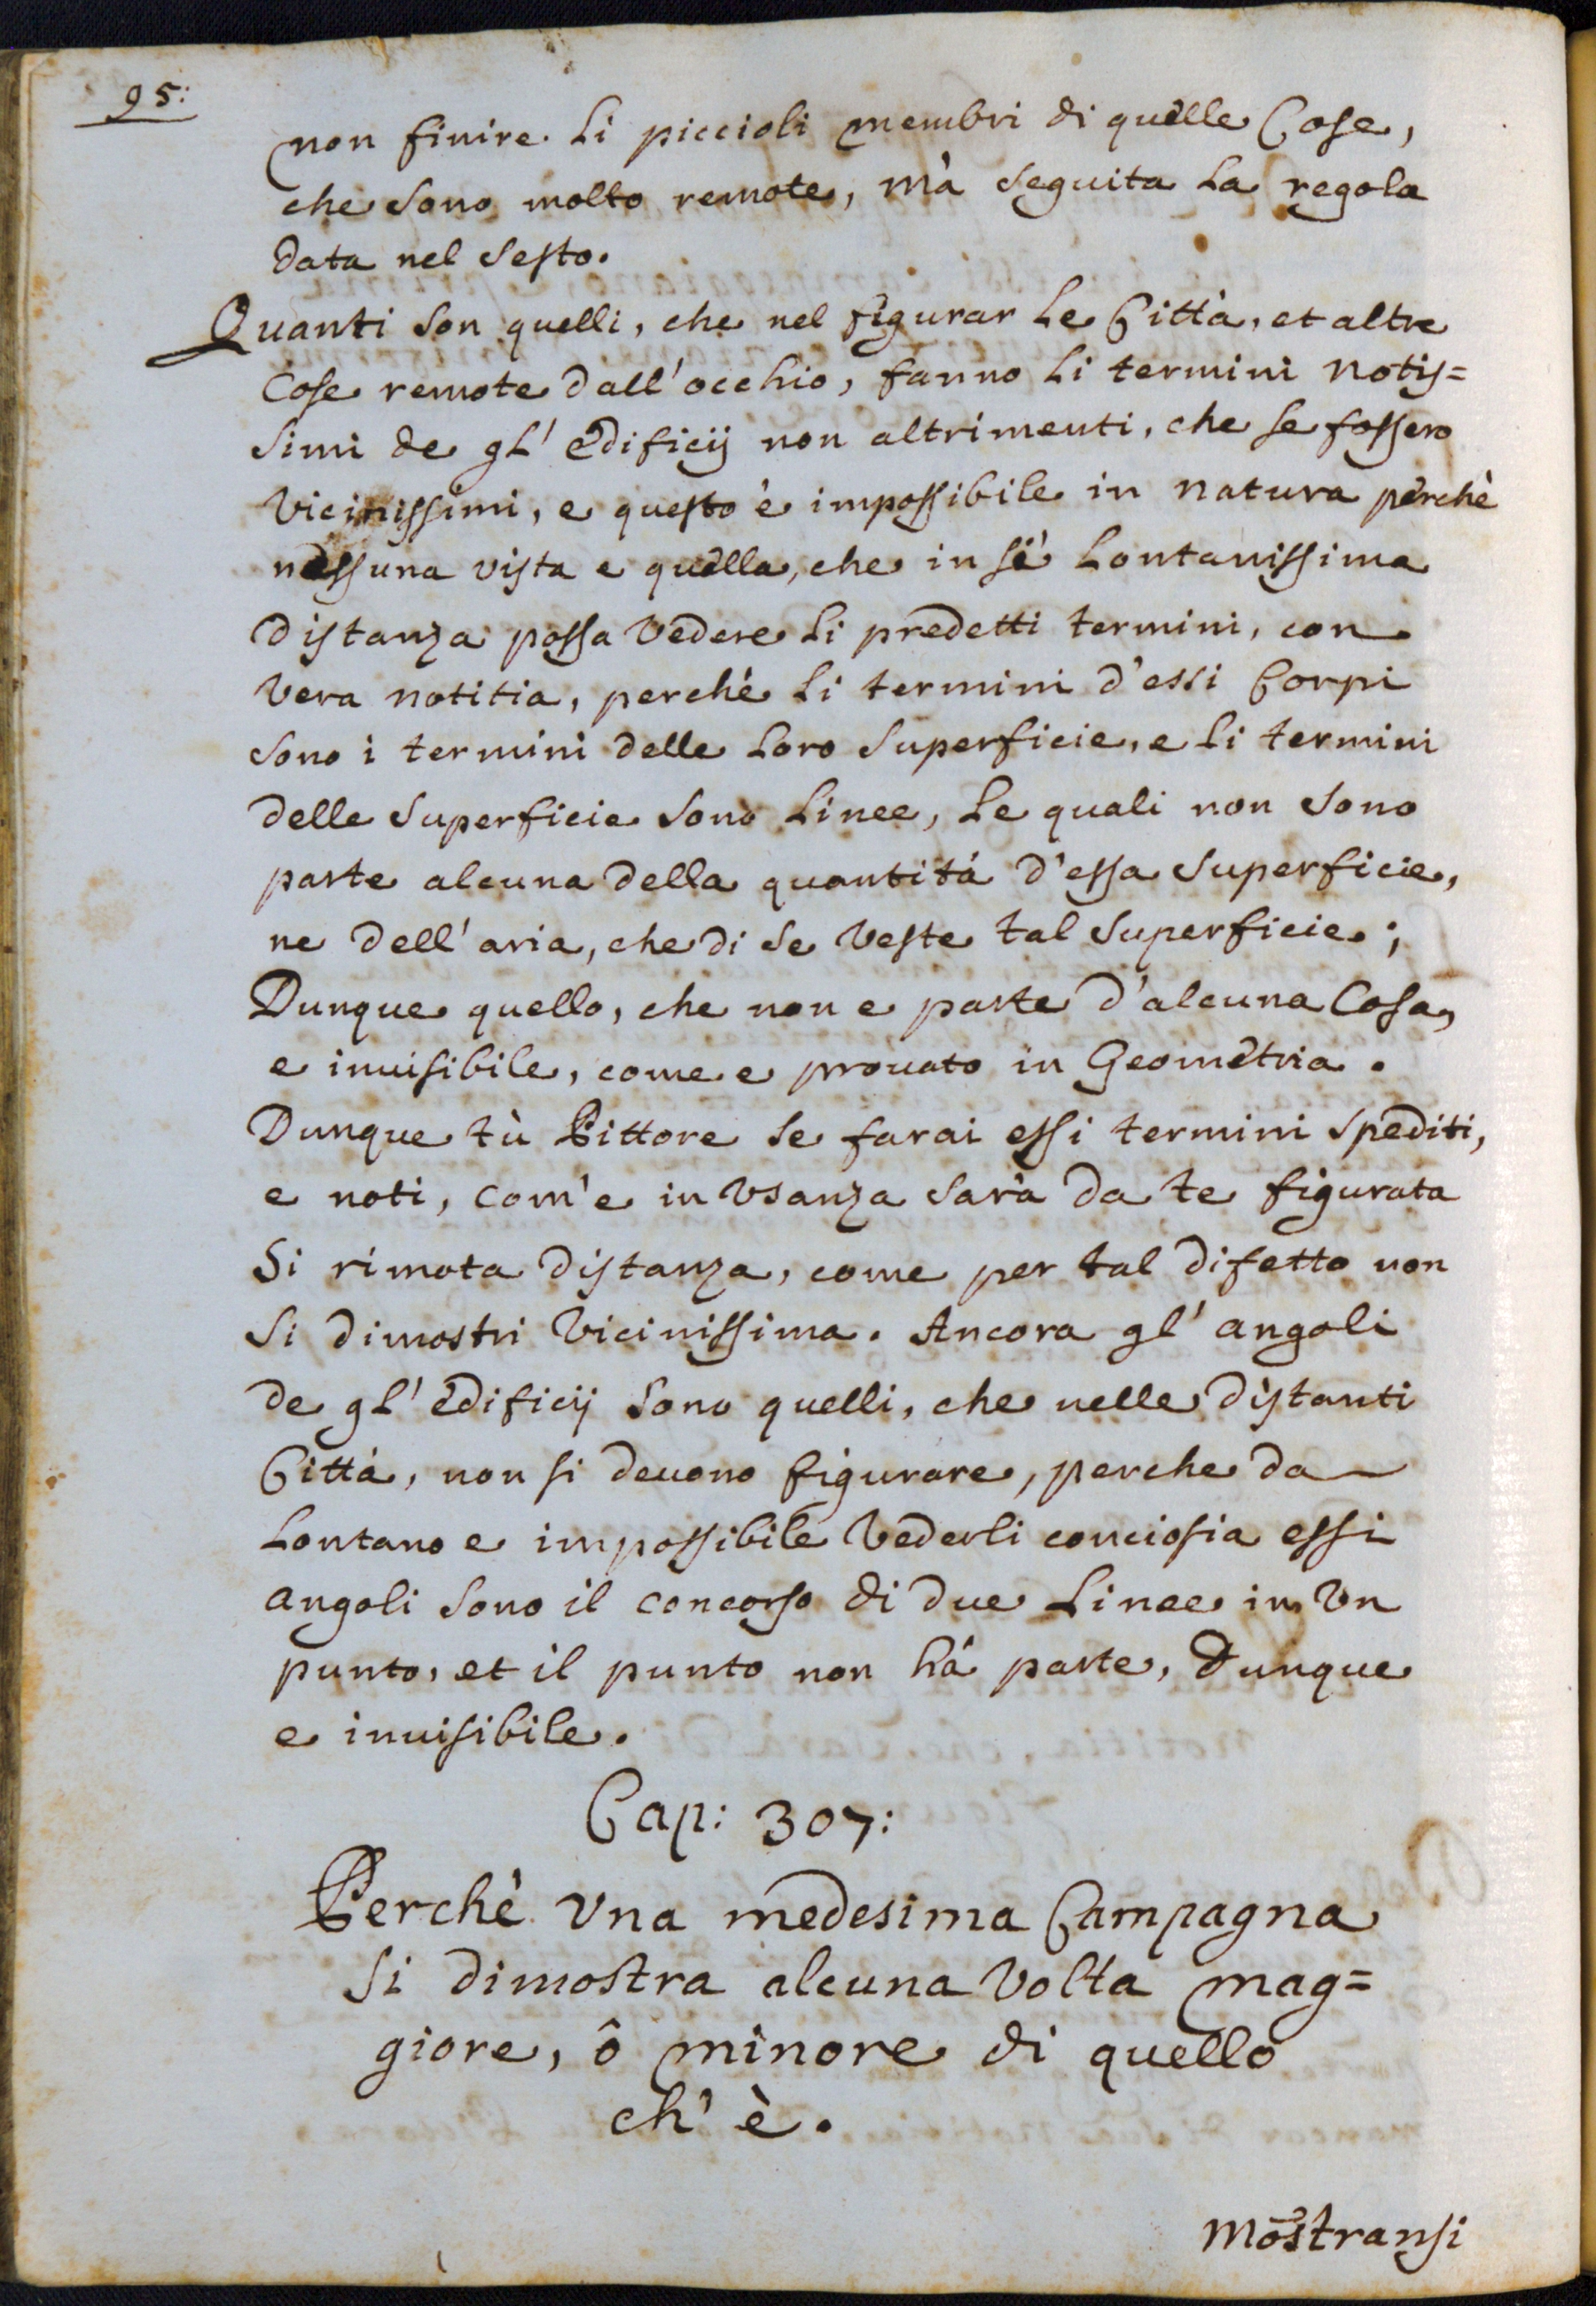 95:
non finire li piccioli membri di quelle Cose,
che sono molto remote, mà seguita la regola
data nel sesto.
Quanti son quelli, che nel figurar le Città, et altre
Cose remote dall'occhio, fanno li termini notis=
simi de gl'edificij non altrimenti, che se fossero
Vicinissimi, e questo è impossibile in natura perchè
nessuna vista e quella, che in sè lontanissima
distanza possa Vedere li predetti termini, con
Vera notitia, perchè li termini d'essi Corpi
sono i termini delle loro superficie, e li termini
delle superficie sono linee, le quali non sono
parte alcuna della quantità d'essa superficie,
ne dell'aria, che di se Veste tal superficie;
Dunque quello, che non e parte d'alcuna Cosa,
e inuisibile, come e prouato in Geometria.
Dunque tù Pittore se farai essi termini spediti,
e noti, com'e in Vsanza sarà da te figurata
si rimota distanza, come per tal difetto non
si dimostri Vicinissima. Ancora gl'angoli
de gl'edificij sono quelli, che nelle distanti
Città, non si deuono figurare, perche da
lontano e impossibile Vederli conciosia essi
angoli sono il concorso di due linee in Vn
punto, et il punto non hà parte, dunque
e inuisibile.
Cap: 307:
Perchè Vna medesima Campagna
si dimostra alcuna Volta mag=
giore, ô minore di quello
ch'è.
Mostransi